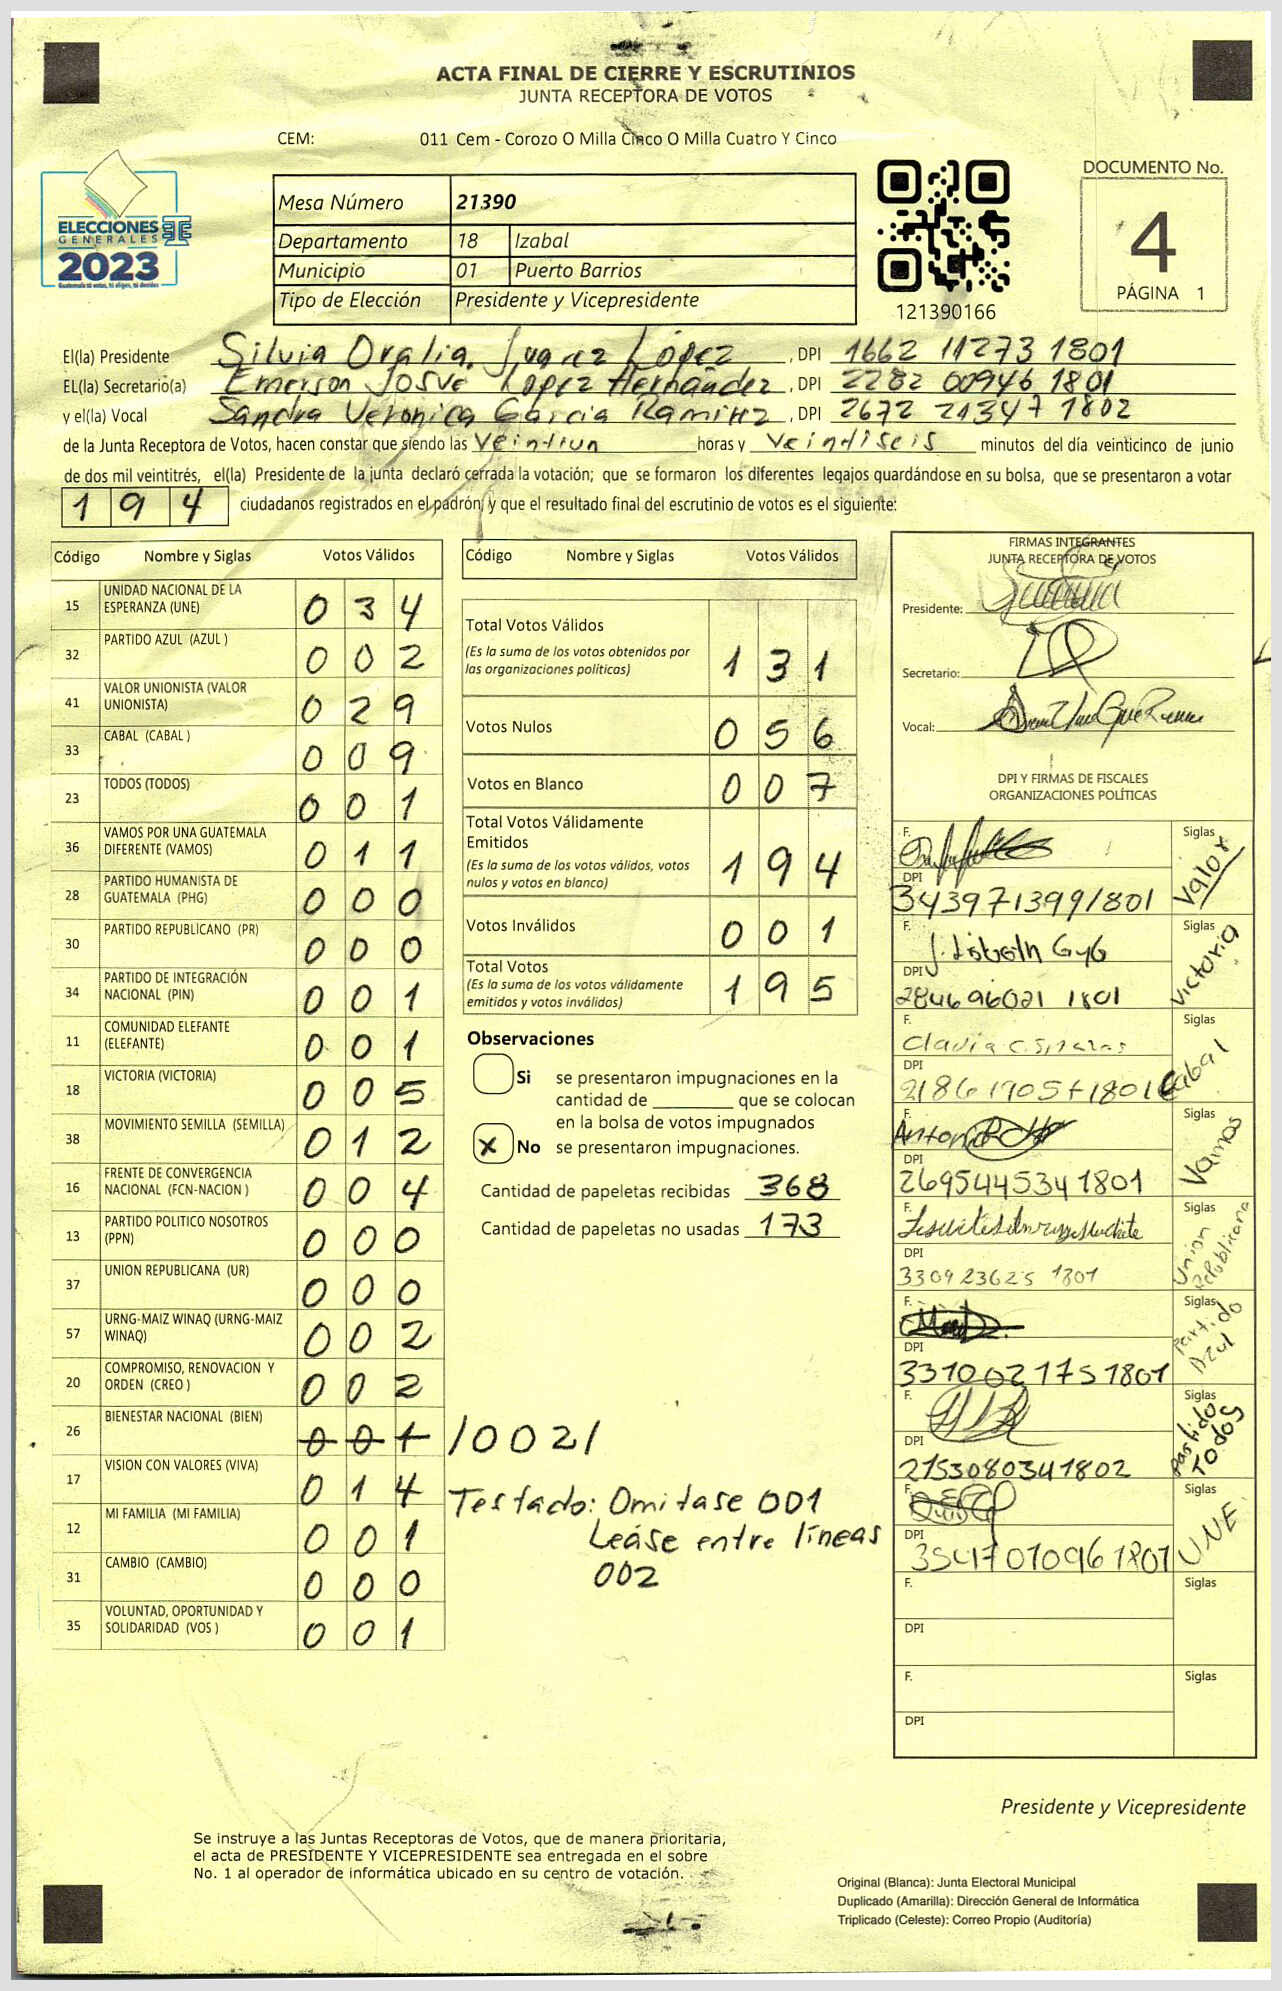 ACTA FINAL DE CIERRE Y ESCRUTINIOS
JUNTA RECEPTORA DE VOTOS
CEM: 011 Cem - Corozo O Milla Cinco O Milla Cuatro Y Cinco
ELECCIONES
GENERALES
2023
Mesa Número 21390
Departamento 18 Izabal
Municipio 01 Puerto Barrios
Tipo de Elección Presidente y Vicepresidente
121390166
DOCUMENTO No.
4
PÁGINA 1
El(la) Presidente Silvia Oralia Juarez López, DPI 1662 11273 1801
EL(la) Secretario(a) Emerson Josué López Hernández, DPI 2282 00946 1801
y el(la) Vocal Sandra Veronica Garcia Ramirez, DPI 2672 21347 1802
de la Junta Receptora de Votos, hacen constar que siendo las veintiun horas y veintiseis minutos del día veinticinco de junio
de dos mil veintitrés, el(la) Presidente de la junta declaró cerrada la votación; que se formaron los diferentes legajos guardándose en su bolsa, que se presentaron a votar
194 ciudadanos registrados en el padrón, y que el resultado final del escrutinio de votos es el siguiente:
Código Nombre y Siglas Votos Válidos
15 UNIDAD NACIONAL DE LA ESPERANZA (UNE) 034
32 PARTIDO AZUL (AZUL ) 002
41 VALOR UNIONISTA (VALOR UNIONISTA) 029
33 CABAL (CABAL ) 009
23 TODOS (TODOS) 001
36 VAMOS POR UNA GUATEMALA DIFERENTE (VAMOS) 011
28 PARTIDO HUMANISTA DE GUATEMALA (PHG) 000
30 PARTIDO REPUBLICANO (PR) 000
34 PARTIDO DE INTEGRACIÓN NACIONAL (PIN) 001
11 COMUNIDAD ELEFANTE (ELEFANTE) 001
18 VICTORIA (VICTORIA) 005
38 MOVIMIENTO SEMILLA (SEMILLA) 012
16 FRENTE DE CONVERGENCIA NACIONAL (FCN-NACION ) 004
13 PARTIDO POLITICO NOSOTROS (PPN) 000
37 UNION REPUBLICANA (UR) 000
57 URNG-MAIZ WINAQ (URNG-MAIZ WINAQ) 002
20 COMPROMISO, RENOVACION Y ORDEN (CREO ) 002
26 BIENESTAR NACIONAL (BIEN) 001 /002/
17 VISION CON VALORES (VIVA) 014
12 MI FAMILIA (MI FAMILIA) 001
31 CAMBIO (CAMBIO) 000
35 VOLUNTAD, OPORTUNIDAD Y SOLIDARIDAD (VOS ) 001
Testado: Omitase 001
Leáse entre líneas
002
Código Nombre y Siglas Votos Válidos
Total Votos Válidos 131
(Es la suma de los votos obtenidos por
las organizaciones políticas)
Votos Nulos 056
Votos en Blanco 007
Total Votos Válidamente
Emitidos 194
(Es la suma de los votos válidos, votos
nulos y votos en blanco)
Votos Inválidos 001
Total Votos 195
(Es la suma de los votos válidamente
emitidos y votos inválidos)
Observaciones
Si se presentaron impugnaciones en la
cantidad de ________ que se colocan
en la bolsa de votos impugnados
X No se presentaron impugnaciones.
Cantidad de papeletas recibidas 368
Cantidad de papeletas no usadas 173
FIRMAS INTEGRANTES
JUNTA RECEPTORA DE VOTOS
Presidente:
Secretario:
Vocal:
DPI Y FIRMAS DE FISCALES
ORGANIZACIONES POLÍTICAS
F. Siglas Valor
DPI 3439713991801
F. Siglas Victoria
DPI 284696021 1801
F. Siglas Cabal
DPI
F. Antonio Siglas Vamos
DPI 2695445341801
F. Siglas Union Republicana
DPI 330923625 1801
F. Siglas Partido Azul
DPI 3310021751801
F. Siglas Partido Todos
DPI 2153080341802
F. Siglas UNE
DPI 3547010961801
F. Siglas
DPI
F. Siglas
DPI
Presidente y Vicepresidente
Se instruye a las Juntas Receptoras de Votos, que de manera prioritaria,
el acta de PRESIDENTE Y VICEPRESIDENTE sea entregada en el sobre
No. 1 al operador de informática ubicado en su centro de votación.
Original (Blanca): Junta Electoral Municipal
Duplicado (Amarilla): Dirección General de Informática
Triplicado (Celeste): Correo Propio (Auditoría)